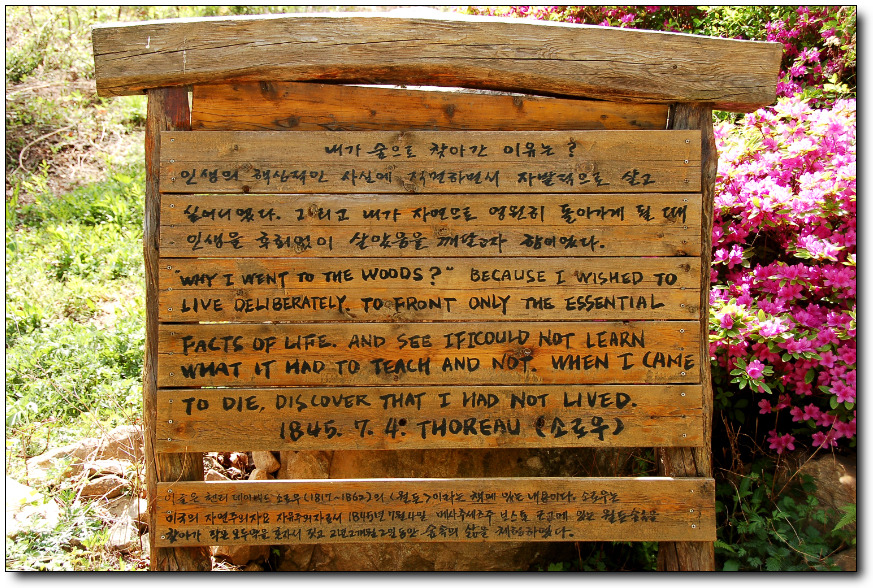 내가 숲으로 찾아간 이유는?
인생의 핵심적인 사실에 직면하면서 자발적으로 살고
싶어서였다. 그리고 내가 자연으로 영원히 돌아가게 될 때
인생을 후회없이 살았음을 깨닫고자 함이었다.
"WHY I WENT TO THE WOODS?" BECAUSE I WISHED TO
LIVE DELIBERATELY. TO FRONT ONLY THE ESSENTIAL
FACTS OF LIFE. AND SEE IF I COULD NOT LEARN
WHAT IT HAD TO TEACH AND NOT. WHEN I CAME
TO DIE, DISCOVER THAT I HAD NOT LIVED.
1845. 7. 4. THOREAU (소로우)
헨리 데이빗드 소로우(1817~1862)의 <월든>이라는 책에 있는 내용이다. 소로우는
미국의 자연주의자요 자유주의자로서 1845년 7월 4일 메사추세츠주 보스톤 근교에 있는 월든숲을
찾아가 작은 오두막을 혼자서 짓고 2년 2개월 2일동안 숲속의 삶을 체험하였다.